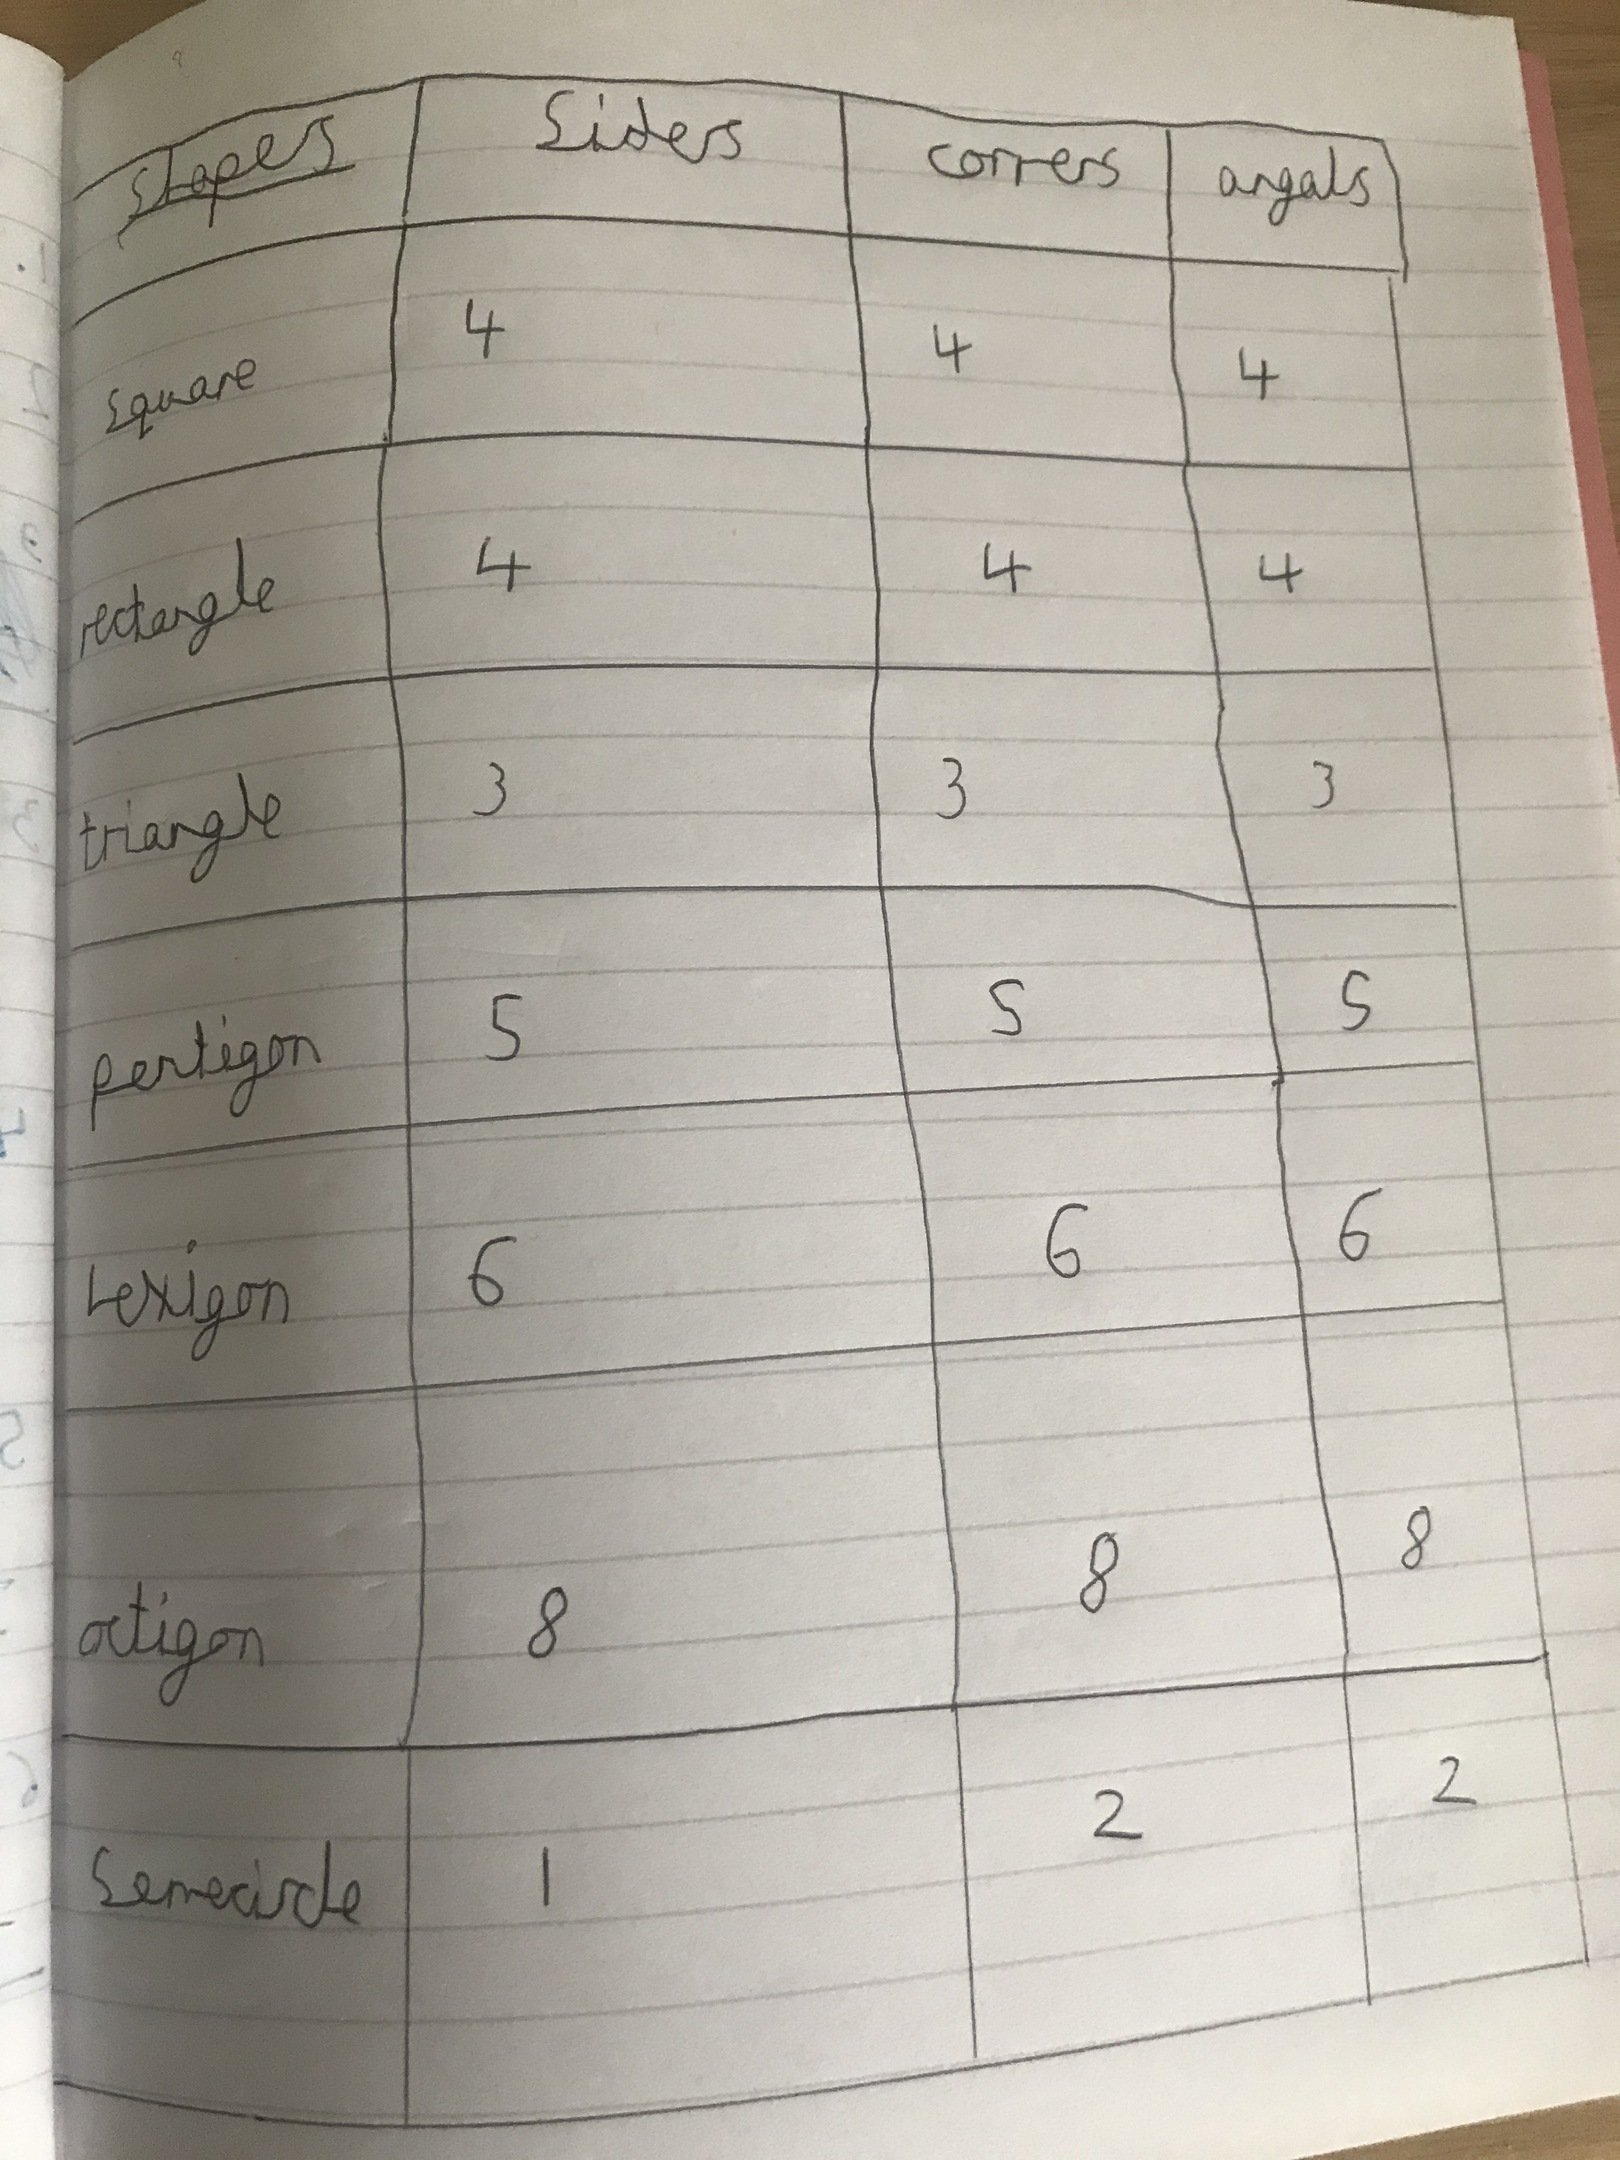 Shapes Siders corners angals
Square 4 4 4
rectangle 4 4 4
triangle 3 3 3
pentigon 5 5 5
hexigon 6 6 6
octigon 8 8 8
Semecircle 1 2 2